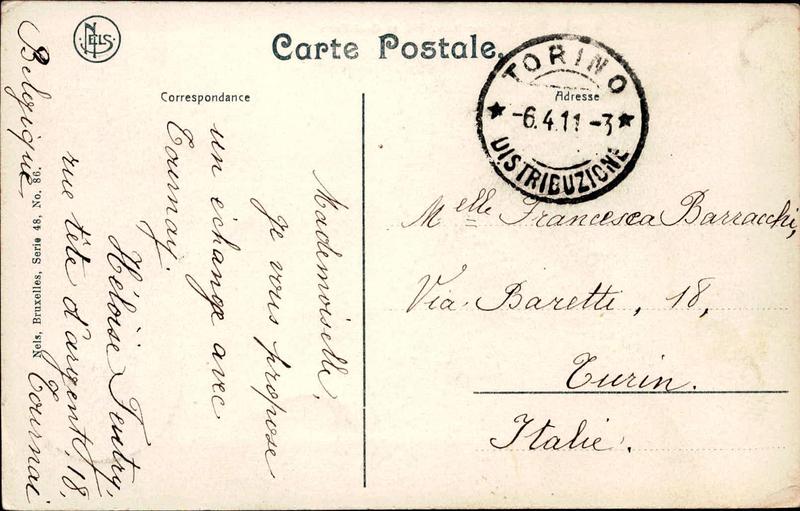 NELS
Carte Postale.
Correspondance
Adresse
TORINO
-6.4.11-3
DISTRIBUZIONE
Mademoiselle,
Je vous propose
un échange avec
Tournay.
Héloïse Feutry,
rue tête d'argent, 18,
Tournai
Belgique.
Nels, Bruxelles, Serie 48, No. 86.
Melle Francesca Barracchi,
Via Baretti, 18,
Turin.
Italie.